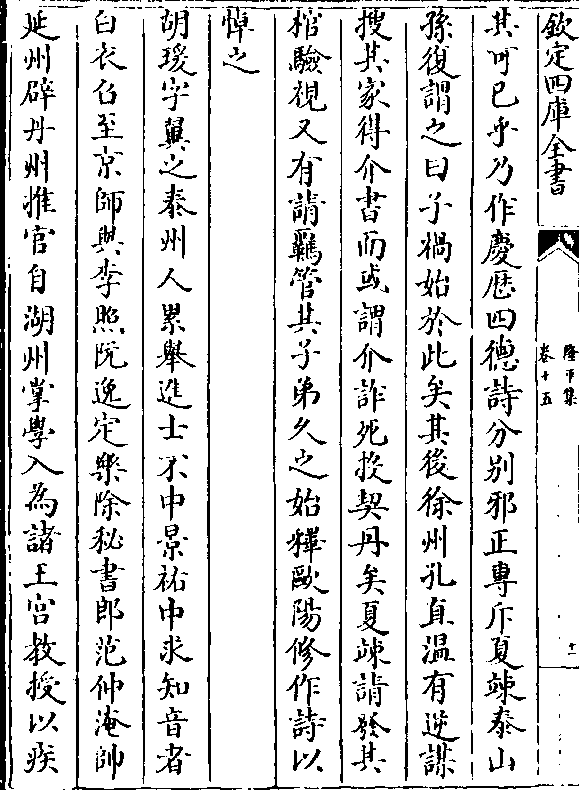 欽定四庫全書
隆平集
卷十五
十一
其可已乎乃作慶厯四德詩分别邪正專斥夏竦泰山
孫復謂之曰子禍始於此矣其後徐州孔直温有逆謀
搜其家得介書而或謂介詐死投契丹矣夏竦請發其
棺驗視又有請羈管其子弟久之始釋歐陽修作詩以
悼之
胡瑗字翼之泰州人累舉進士不中景祐中求知音者
白衣召至京師與李照阮逸定樂除秘書郎范仲淹帥
延州辟丹州推官自湖州掌學入為諸王宫教授以疾